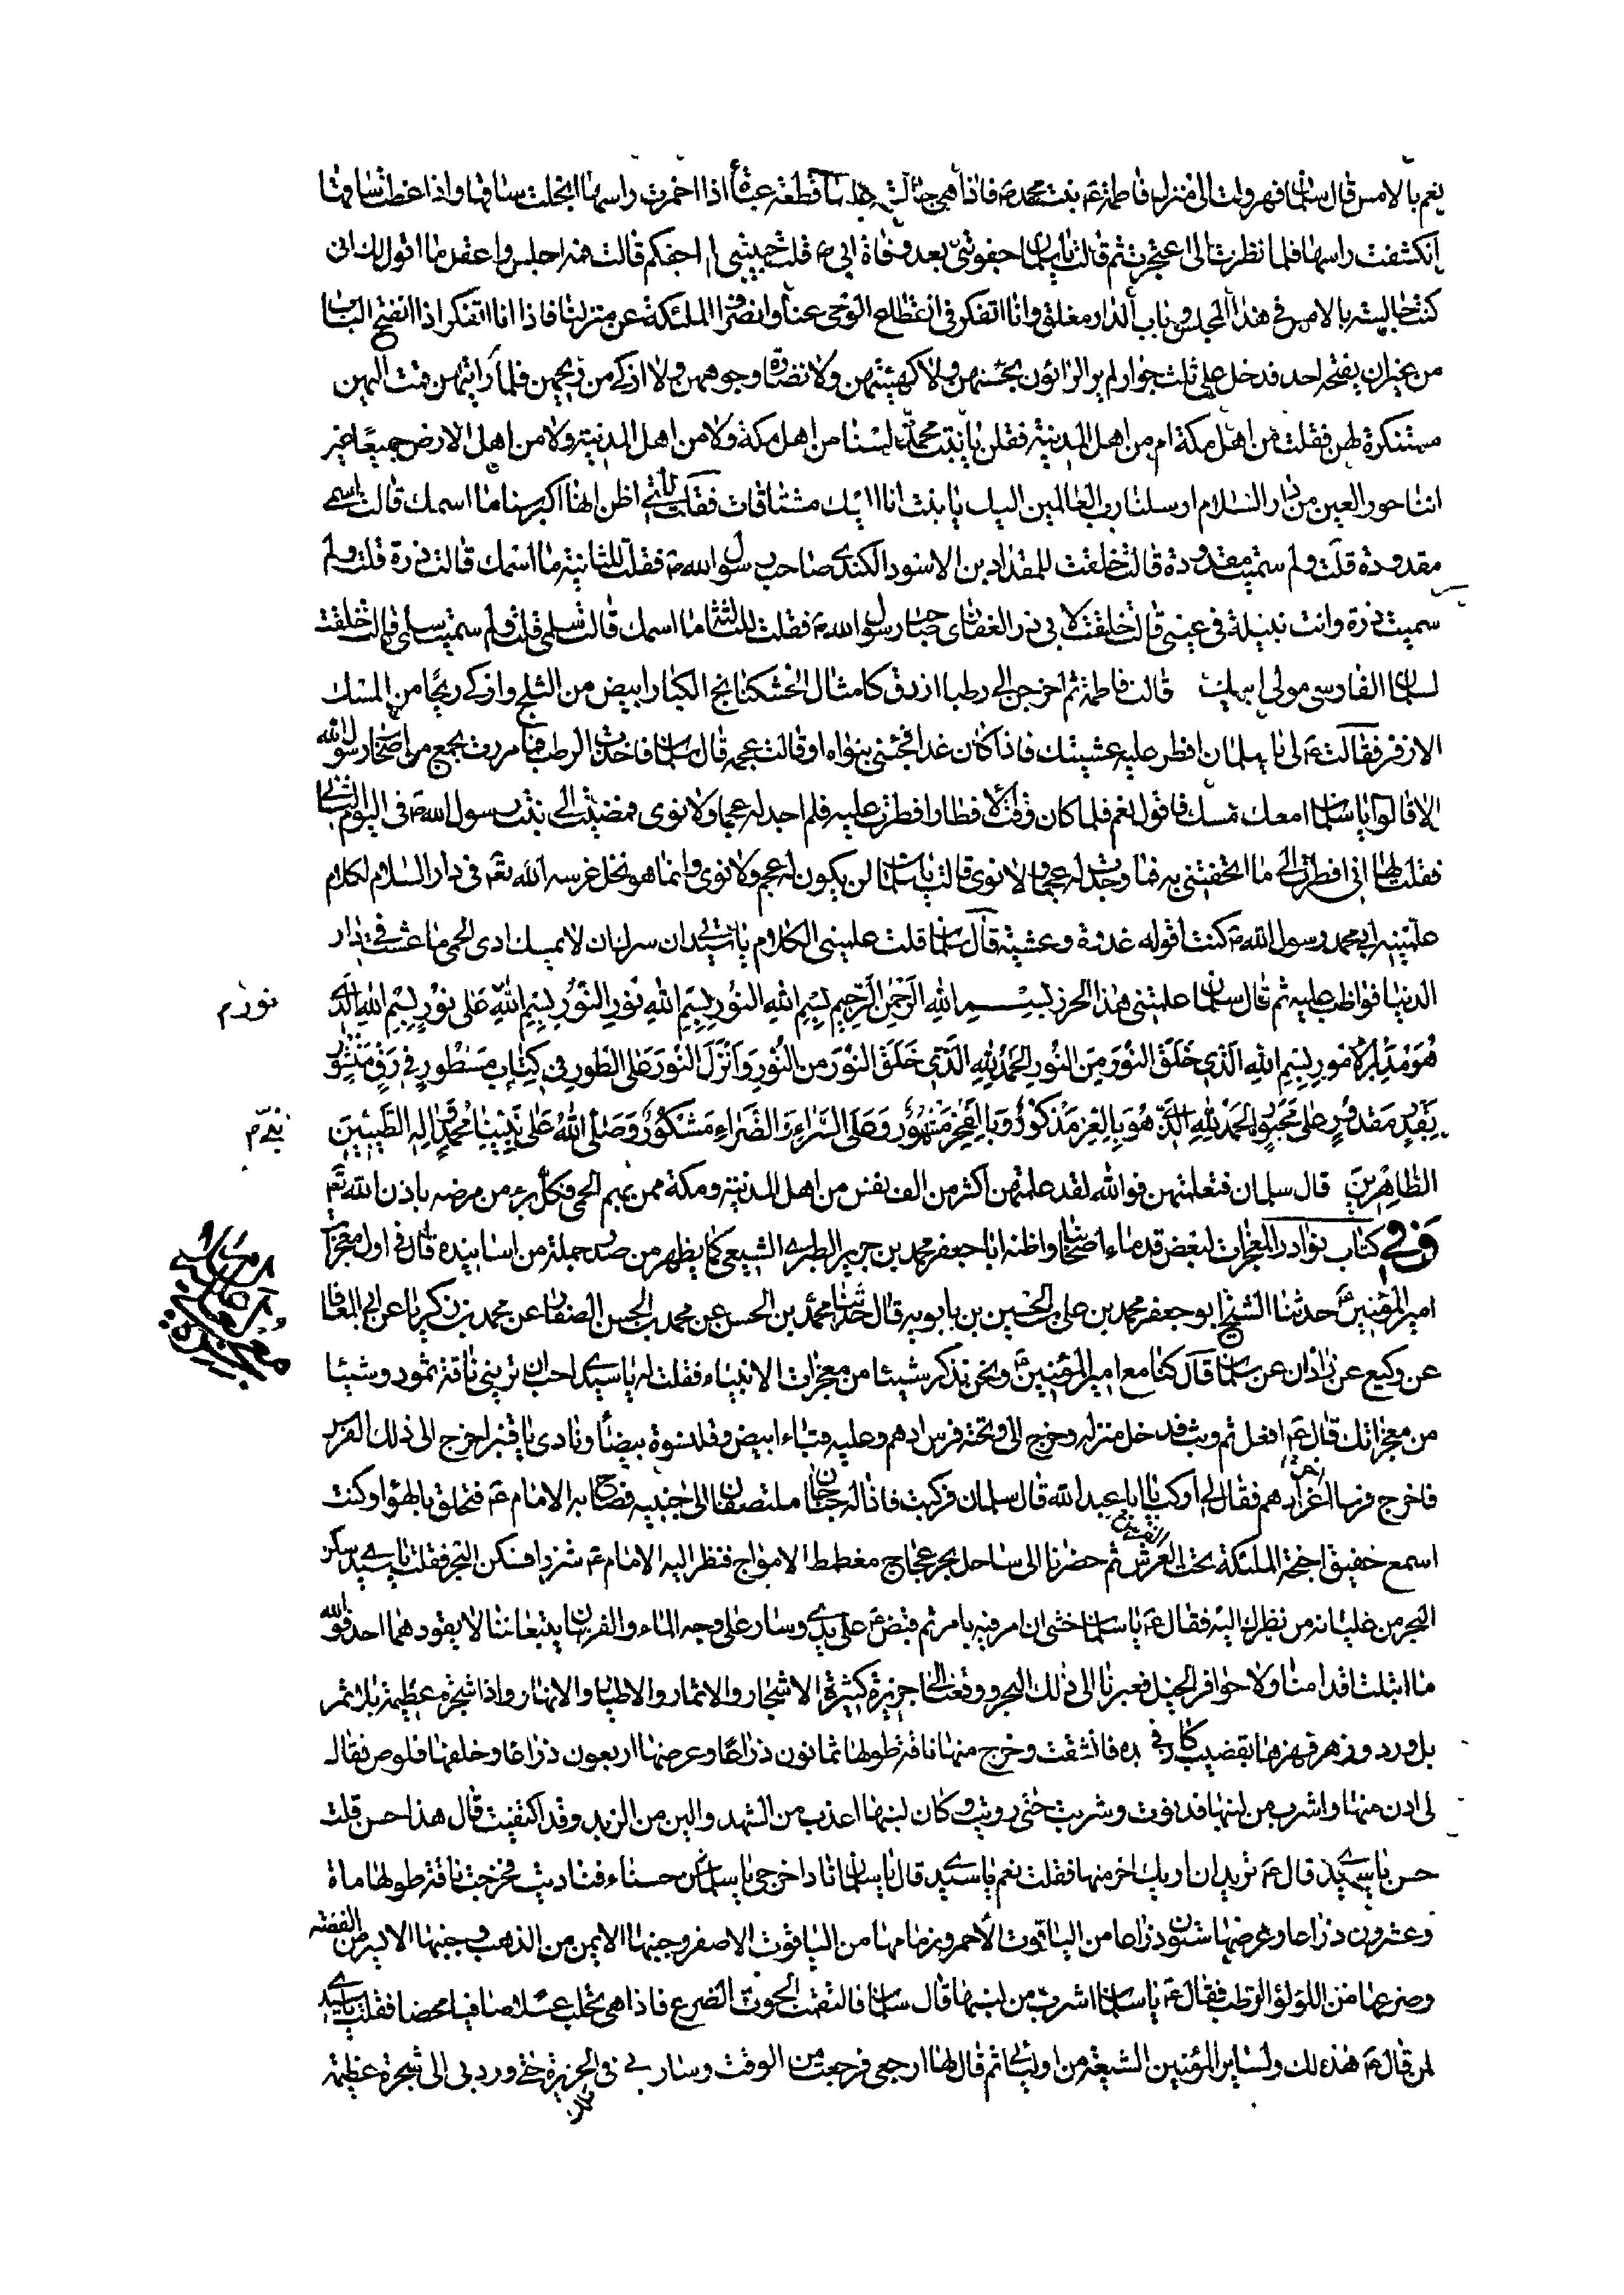 نعم بالامس قال سلمان فهرولت الى منزل فاطمة ع بنت محمد ص فاذا هى جالسة وعليها قطعة عباء اذا اخمرت راسها انجلت ساقها واذا غطت ساقها
انكشفت راسها فلما نظرت الى اعتجرت ثم قالت يا سلمان جفوتنى بعد وفاة ابى ص قلت حبيبتى لم اجفكم قالت فمه اجلس واعقل ما اقول لك انى
كنت جالسة بالامس فى هذا المجلس وباب الدار مغلق وانا اتفكر فى انقطاع الوحى عنا وانصراف الملئكة عن منزلنا فاذا انا اتفكر اذا انفتح الباب
من غير ان يفتحه احد فدخل على ثلث جوار لم ير الراؤن بحسنهن ولا كهيئتهن ولا نضارة وجوههن ولا ازكى من ريحهن فلما رايتهن قمت اليهن
مستنكرة لهن فقلت من اهل مكة ام من اهل المدينة فقلن يا بنت محمد لسنا من اهل مكة ولا من اهل المدينة ولا من اهل الارض جميعا غير
اننا حور العين من دار السلام ارسلنا رب العالمين اليك يا بنت انا اليك مشتاقات فقلت للتى اظن انها اكبر سنا ما اسمك قالت اسمى
مقدودة قلت ولم سميت مقدودة قالت خلقت للمقداد بن الاسود الكندى صاحب رسول الله ص فقلت للثانية ما اسمك قالت ذرة قلت ولم
سميت ذرة وانت نبيلة فى عينى قالت خلقت لابى ذر الغفارى صاحب رسول الله ص فقلت للثالثة ما اسمك قالت سلمى قلت ولم سميت سلمى قالت خلقت
لسلمان الفارسى مولى ابيك قالت فاطمة ثم اخرجن الى رطبا ازرق كامثال الخشكنانج الكبار ابيض من الثلج وازكى ريحا من المسك
الازفر فقالت ع لى يا سلمان افطر عليه عشيتك فاذا كان غدا فجئنى بنواه او قالت عجمه قال سلمان فاخذت الرطب فما مررت بجمع من اصحاب رسول الله
الا قالوا يا سلمان امعك مسك فاقول نعم فلما كان وقت الافطار افطرت عليه فلم اجد له عجما ولا نوى فمضيت الى بنت رسول الله ص فى اليوم الثانى
فقلت لها انى افطرت على ما اتحفتنى به فما وجدت له عجما ولا نوى قالت يا سلمان لن يكون له عجم ولا نوى وانما هو نخل غرسه الله تع فى دار السلام لكلام
علمنيه ابى محمد رسول الله ص كنت اقوله غدوة وعشية قال سلمان قلت علمينى الكلام يا سيدتى ان سرك ان لا يمسك اذى الحمى ما عشت فى دار
الدنيا فواظب عليه ثم قال سلمان علمتنى هذا الحرز بسم الله الرحمن الرحيم بسم الله النور بسم الله نور النور بسم الله على نور بسم الله الذى
نور م
هو مدبر الامور بسم الله الذى خلق النور من النور الحمد لله الذى خلق النور من النور وانزل النور على الطور فى كتاب مسطور فى رق منشور
بقدر مقدور على نبى محبور الحمد لله الذى هو بالعز مذكور وبالفخر مشهور وعلى السراء والضراء مشكور وصلى الله على نبينا محمد واله الطيبين
الطاهرين قال سلمان فتعلمتهن فوالله لقد علمتهن اكثر من الف نفس من اهل المدينة ومكة ممن بهم الحمى فكل برء من مرضه باذن الله تع
وفى كتاب نوادر المعجزات لبعض قدماء اصحابنا واظنه ابا جعفر محمد بن جرير الطبرى الشيعى كما يظهر من صدر جملة من اسانيده قال فى اول معجزات
امير المؤمنين ع حدثنا الشيخ ابو جعفر محمد بن على بن الحسين بن بابويه قال حدثنا محمد بن الحسن عن محمد بن الحسن الصفار عن محمد بن زكريا عن ابى المعافا
عن وكيع عن زاذان عن سلمان قال كنا مع امير المؤمنين ع ونحن نذكر شيئا من معجزات الانبياء فقلت له يا سيدى احب ان ترينى ناقة ثمود وشيئا
من معجزاتك قال ع افعل ثم وثب فدخل منزله وخرج الى وتحته فرس ادهم وعليه قباء ابيض وقلنسوة بيضاء ونادى يا قنبر اخرج الى ذلك الفرس
فاخرج فرسا اغر ادهم فقال لى اركب يا ابا عبد الله قال سلمان فركبت فاذا له جناحان ملتصقان الى جنبيه فصاح به الامام ع فتحلق بالهواء وكنت
اسمع خفيق اجنحة الملئكة تحت العرش ثم حضرنا الى ساحل بحر عجاج مغطمط الامواج فنظر اليه الامام ع شزرا فسكن البحر فقلت يا سيدى سكن
البحر من غليانه من نظرك اليه فقال ع يا سلمان خشى ان امر فيه بامر ثم قبض ع على يدى وسار على وجه الماء والفرسان يتبعاننا لا يقودهما احد فوالله
ما ابتلت اقدامنا ولا حوافر الخيل فعبرنا الى ذلك البحر ووقعنا الى جزيرة كثيرة الاشجار والاثمار والاطيار والانهار واذا شجرة عظيمة بلا ثمر
بل ورد وزهر فهزها بقضيب كان فى يده فانشقت وخرج منها ناقة طولها ثمانون ذراعا وعرضها اربعون ذراعا وخلفها قلوص فقال
لى ادن منها واشرب من لبنها فدنوت وشربت حتى رويت وكان لبنها اعذب من الشهد والين من الزبد وقد اكتفيت قال هذا حسن قلت
حسن يا سيدى قال ع تريد ان اريك اخر منها فقلت نعم يا سيدى قال يا سلمان ناد اخرجى يا حسناء فناديت فخرجت ناقة طولها مائة
وعشرون ذراعا وعرضها ستون ذراعا من الياقوت الاحمر وزمامها من الياقوت الاصفر وجنبها الايمن من الذهب وجنبها الايسر من الفضة
وضرعها من اللؤلؤ الرطب فقال ع يا سلمان اشرب من لبنها قال سلمان فالتقمت الضرع فاذا هى تحلب عسلا صافيا محضا فقلت يا سيدى
لمن قال ع هذه لك ولساير المؤمنين الشيعة من اوليائى ثم قال لها ارجعى فرجعت من الوقت وسار بى فى الجزيرة حتى ورد بى الى شجرة عظيمة